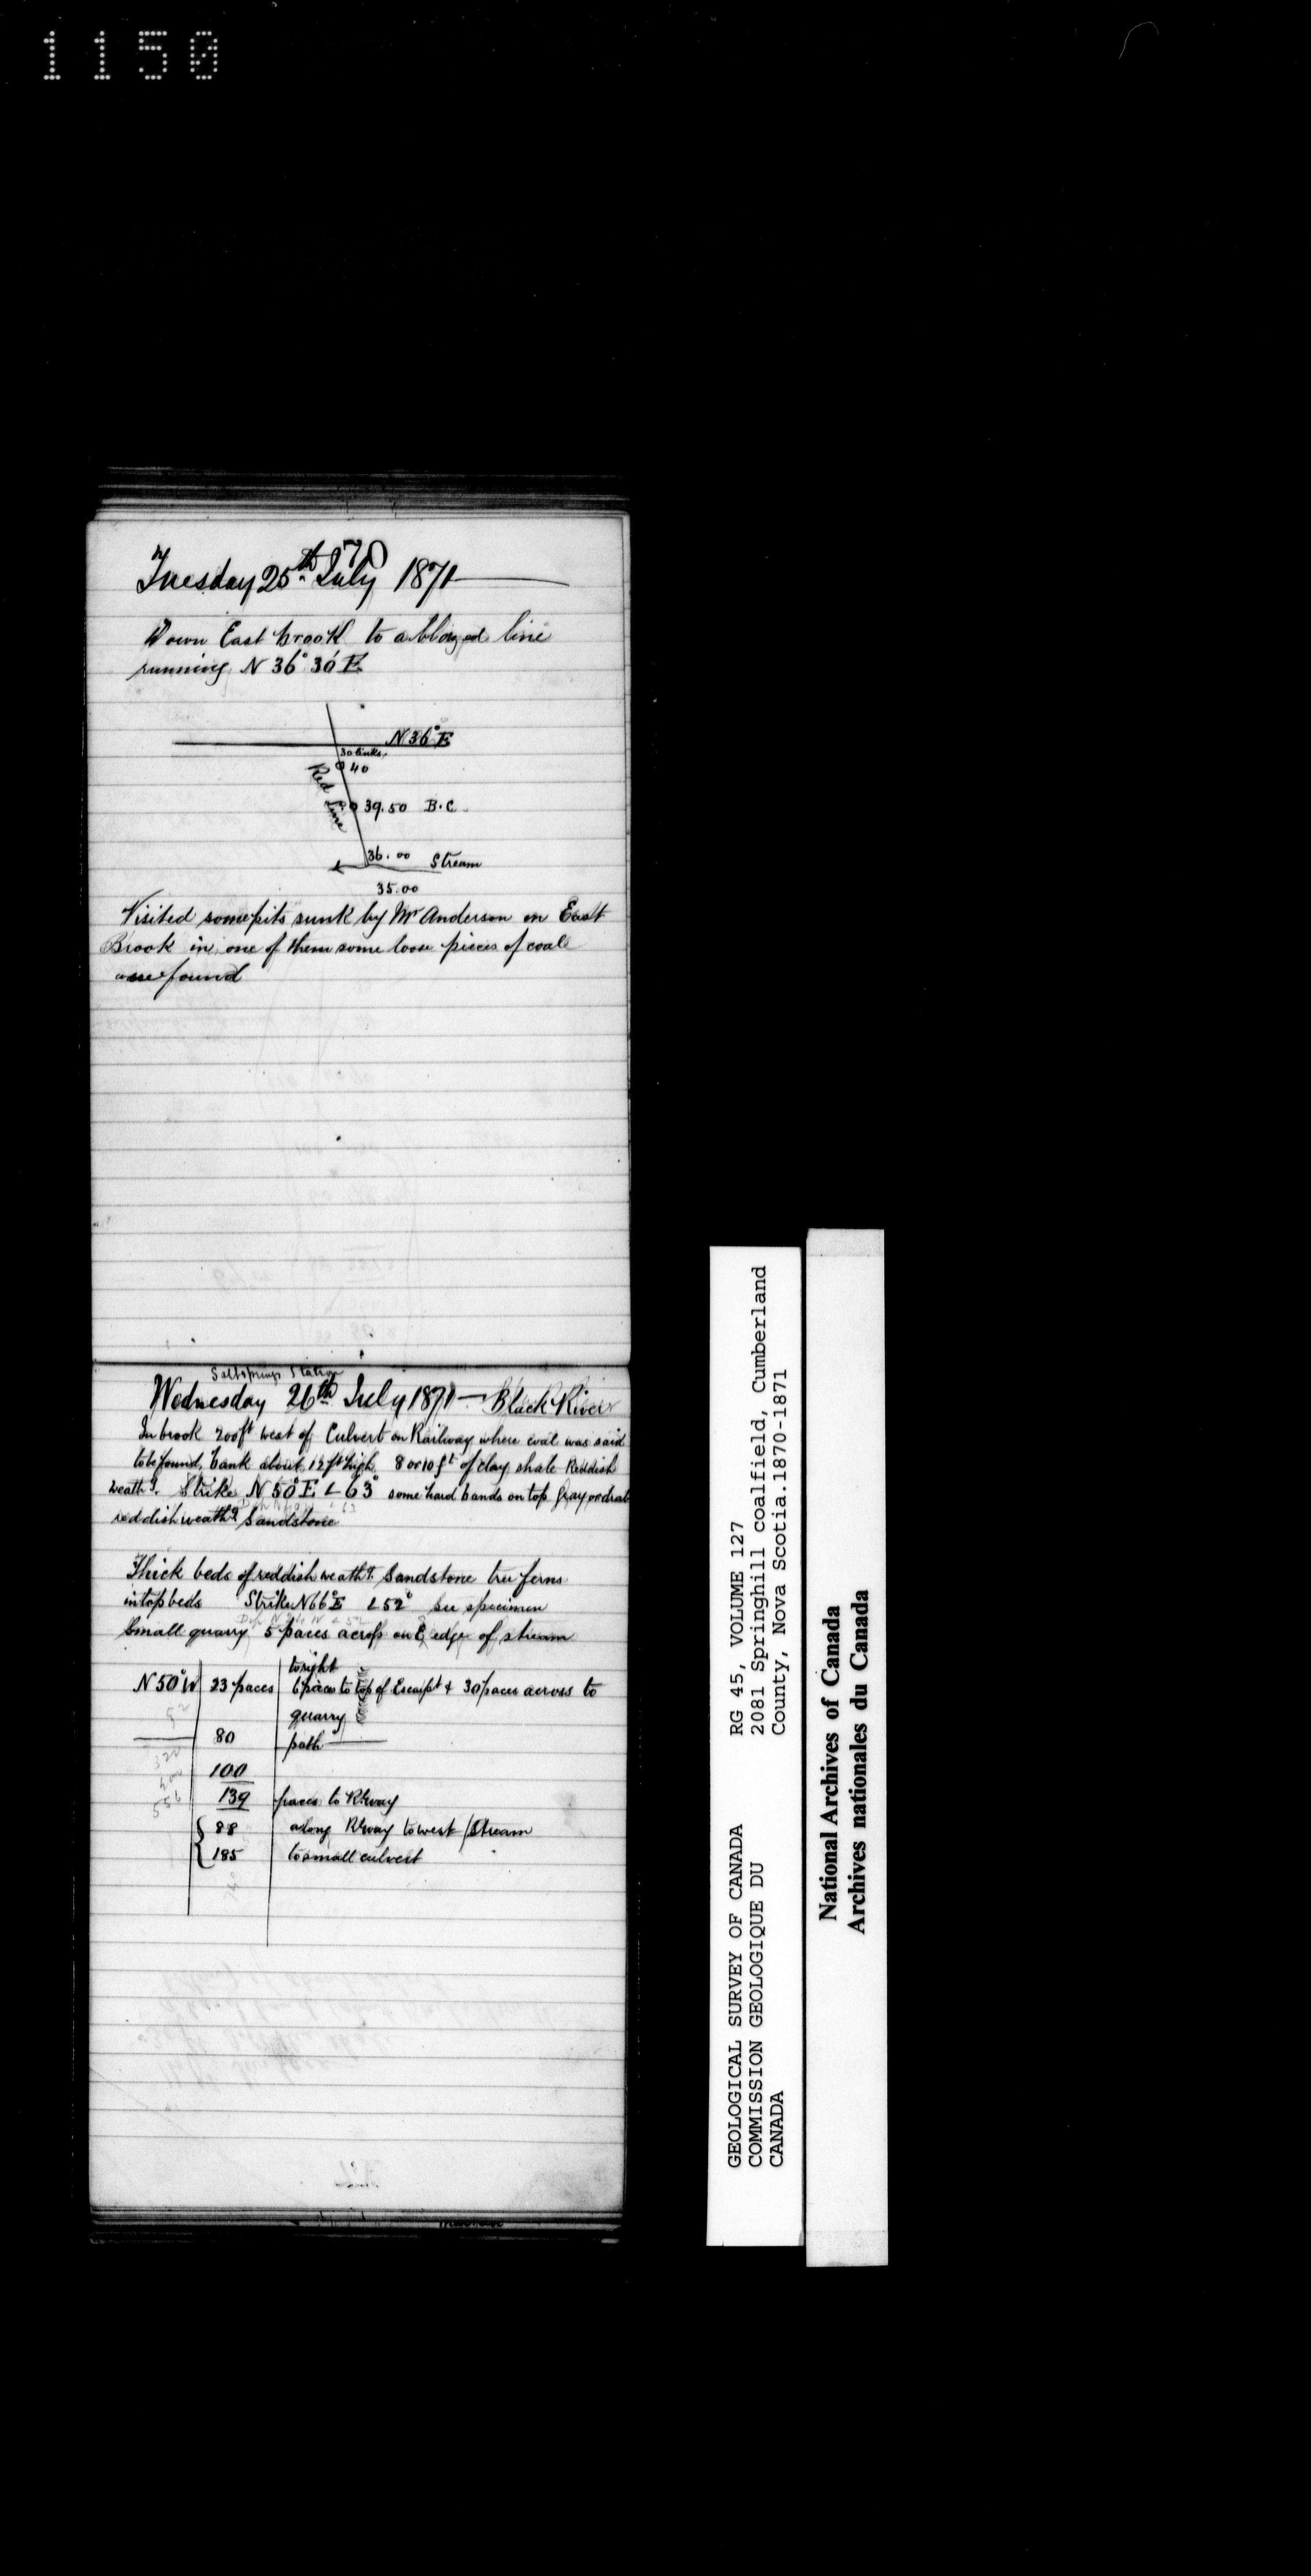 1150
70
Tuesday 25th July 1871
Down East brook to a blazed line
running N 36° 30' E
N 36° E
30 links.
40
Red Line
39.50 B.C.
36.00 Stream
35.00
Visited some pits sunk by Mr Anderson on East
Brook in one of them some loose pieces of coal
were found
Saltsprings Station
Wednesday 26th July 1871 — Black River
In brook 200 ft west of Culvert on Railway where coal was said
to be found, bank about 12 ft high 8 or 10 ft of clay shale Reddish
weathd. Strike N 50° E ∠ 63° some hard bands on top Gray or drab
reddish weathd Sandstone
Thick beds of reddish weathd. Sandstone tree ferns
in top beds Strike N 66° E ∠ 52° see specimen
Small quarry 5 paces across on E edge of stream
to right
N 50° W 23 paces 6 paces to top of Escarpt & 30 paces across to
quarry
80 path
100
139 paces to Rlway
88 along Rlway to west / Stream
185 to small culvert
GEOLOGICAL SURVEY OF CANADA
COMMISSION GEOLOGIQUE DU
CANADA
RG 45, VOLUME 127
2081 Springhill coalfield, Cumberland
County, Nova Scotia.1870-1871
National Archives of Canada
Archives nationales du Canada